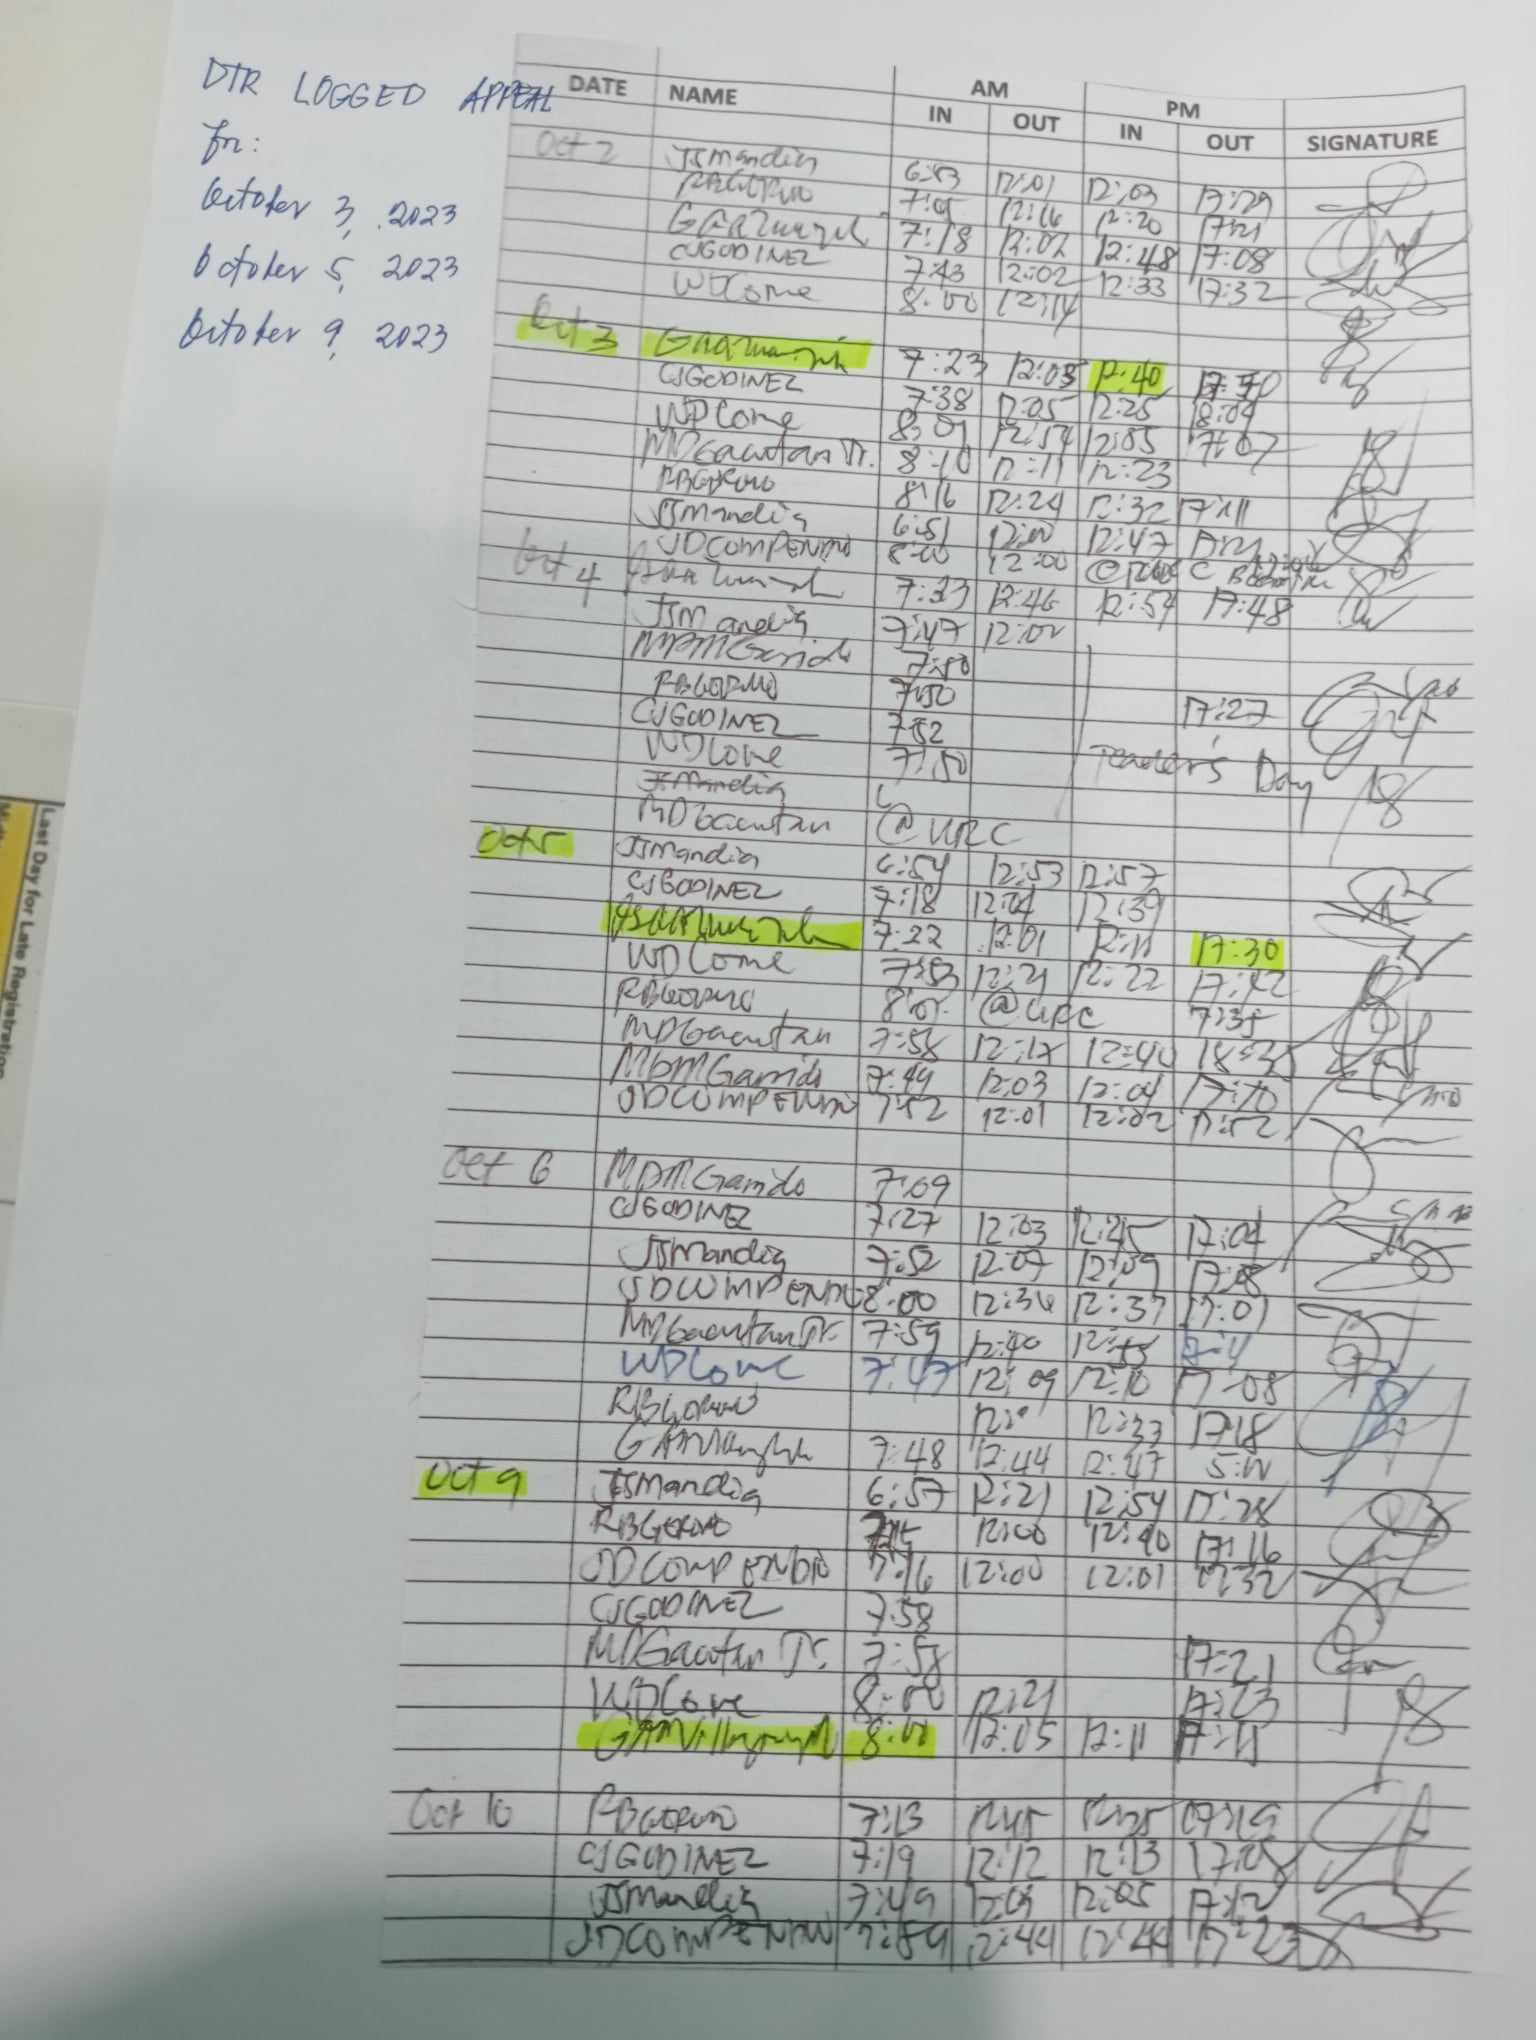 DTR LOGGED APPEAL
for:
October 3, 2023
October 5, 2023
October 9, 2023
DATE NAME AM PM SIGNATURE
IN OUT IN OUT
Oct 2 JSMandia 6:53 12:01 12:03 17:29
RBGORMO 7:05 12:16 12:20 17:21
7:18 12:02 12:48 17:08
CJGODINEZ 7:43 12:02 12:33 17:32
WDCome 8:00 12:14
Oct 3 7:23 12:03 12:40
CJGODINEZ 7:38 12:05 12:25 18:04
WDCome 8:01 12:54 12:55 17:07
MDGacutan Jr. 8:10 12:11 12:23
RBGORMO 8:16 12:24 12:32 17:11
JSMandia 6:51 12:00 12:47 17:21
JDCOMPENDIO 8:00 12:00
Oct 4 7:33 12:46 12:54 17:48
JSMandia 7:47 12:02
MDMGarrido 7:50
RBGORMO 7:50 17:27
CJGODINEZ 7:52
WDCome 7:50 Teacher's Day
JSMandia
MDGacutan @ URC
Oct 5 JSMandia 6:54 12:53 12:57
CJGODINEZ 7:18 12:04 12:39
7:22 12:01 12:11 17:30
WDCome 7:53 12:21 12:22 17:42
RBGORMO 8:01 @URC 17:35
MDGacutan 7:58 12:17 12:40 18:35
MDMGarrido 7:49 12:03 12:04 17:10
JDCOMPENDIO 7:52 12:01 12:02 17:52
Oct 6 MDMGarrido 7:09
CJGODINEZ 7:27 12:03 12:45 17:04
JSMandia 7:52 12:07 12:09 17:08
JDCOMPENDIO 8:00 12:36 12:37 17:01
MDGacutan Jr. 7:59 12:40 12:55
WDCome 7:47 12:09 12:10 17:08
RBGORMO 12:33 17:18
7:48 12:44 12:47 5:00
Oct 9 JSMandia 6:57 12:21 12:54 17:28
RBGORMO 12:00 12:40 17:16
JDCOMPENDIO 7:16 12:00 12:01 17:32
CJGODINEZ 7:58
MDGacutan Jr. 7:58 17:21
WDCome 8:00 12:21 17:23
8:00 12:05 12:11 17:11
Oct 10 RBGORMO 7:13 12:15 12:25 17:19
CJGODINEZ 7:19 12:12 12:13 17:08
JSMandia 7:49 12:03 12:05 17:12
JDCOMPENDIO 7:59 12:44 12:44 17:23
Last Day for Late Registration